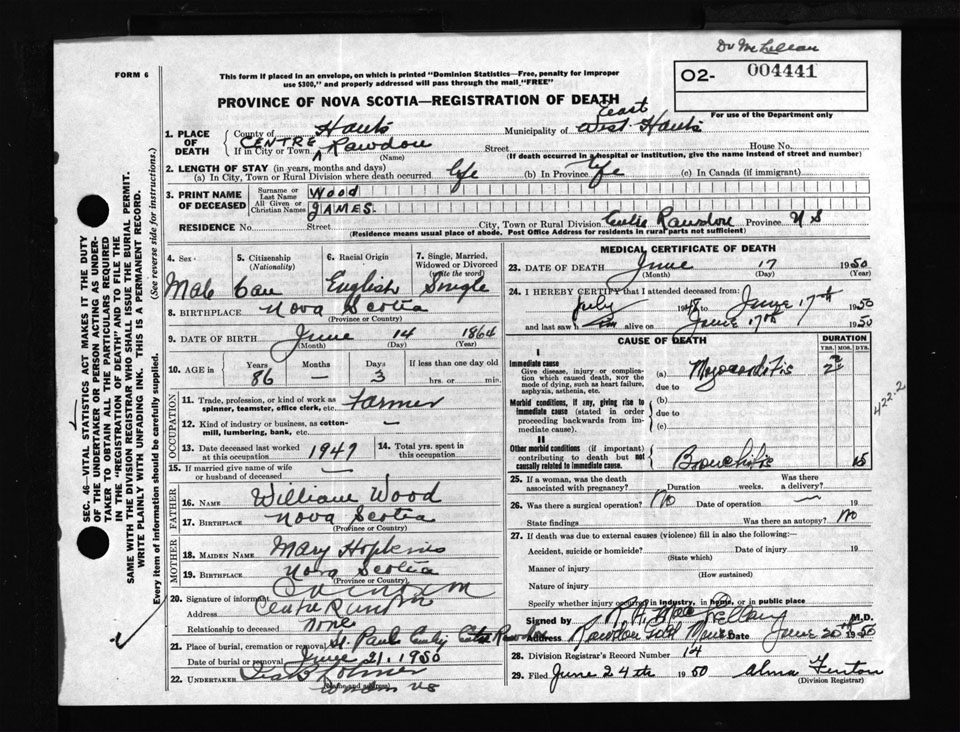 Dr McLellan
FORM 6
This form if placed in an envelope, on which is printed "Dominion Statistics—Free, penalty for improper
use $300," and properly addressed will pass through the mail "FREE"
O2- 004441
For use of the Department only
PROVINCE OF NOVA SCOTIA—REGISTRATION OF DEATH
1. PLACE OF DEATH
County of Hants Municipality of East West Hants
If in City or Town CENTRE Rawdon Street House No.
(Name) (If death occurred in a hospital or institution, give the name instead of street and number)
2. LENGTH OF STAY (in years, months and days)
(a) In City, Town or Rural Division where death occurred life (b) In Province life (c) In Canada (if immigrant)
3. PRINT NAME OF DECEASED
Surname or Last Name WOOD
All Given or Christian Names JAMES.
RESIDENCE No. Street City, Town or Rural Division Centre Rawdon Province N S
(Residence means usual place of abode. Post Office Address for residents in rural parts not sufficient)
4. Sex Male
5. Citizenship (Nationality) Can
6. Racial Origin English
7. Single, Married, Widowed or Divorced (write the word) Single
8. BIRTHPLACE Nova Scotia
(Province or Country)
9. DATE OF BIRTH June 14 1864
(Month) (Day) (Year)
10. AGE in Years 86 Months — Days 3 If less than one day old
hrs. or min.
OCCUPATION
11. Trade, profession, or kind of work as spinner, teamster, office clerk, etc. Farmer
12. Kind of industry or business, as cotton-mill, lumbering, bank, etc. —
13. Date deceased last worked at this occupation 1947
14. Total yrs. spent in this occupation
15. If married give name of wife or husband of deceased —
FATHER
16. NAME William Wood
17. BIRTHPLACE Nova Scotia
(Province or Country)
MOTHER
18. MAIDEN NAME Mary Hopkins
19. BIRTHPLACE Nova Scotia
(Province or Country)
20. Signature of informant
Address Centre Rawdon
Relationship to deceased None
21. Place of burial, cremation or removal St. Pauls Centre Rawdon
Date of burial or removal June 21, 1950
22. UNDERTAKER
(Name and address) NS
MEDICAL CERTIFICATE OF DEATH
23. DATE OF DEATH June 17 1950
(Month) (Day) (Year)
24. I HEREBY CERTIFY that I attended deceased from:
July 1948 to June 17th 1950
and last saw him alive on June 17th 1950
CAUSE OF DEATH
DURATION
YRS. MOS. DYS.
I
Immediate cause
Give disease, injury or complication which caused death, NOT the mode of dying, such as heart failure, asphyxia, asthenia, etc.
(a) Myocarditis 2
due to
Morbid conditions, if any, giving rise to immediate cause (stated in order proceeding backwards from immediate cause).
(b)
due to
(c)
4222
II
Other morbid conditions (if important) contributing to death but not causally related to immediate cause.
Bronchitis 15
25. If a woman, was the death associated with pregnancy? Duration weeks. Was there a delivery?
26. Was there a surgical operation? No Date of operation — 19
State findings Was there an autopsy? No
27. If death was due to external causes (violence) fill in also the following:—
Accident, suicide or homicide? Date of injury 19
(State which)
Manner of injury
(How sustained)
Nature of injury
Specify whether injury occurred in industry, in home, or in public place
Signed by R.A. MacLellan M.D.
Address Rawdon Gold Mines Date June 20th 1950
28. Division Registrar's Record Number 14
29. Filed June 24th 1950 Alma Fenton
(Division Registrar)
SEC. 46—VITAL STATISTICS ACT MAKES IT THE DUTY
OF THE UNDERTAKER OR PERSON ACTING AS UNDER-
TAKER TO OBTAIN ALL THE PARTICULARS REQUIRED
IN THE "REGISTRATION OF DEATH" AND TO FILE THE
SAME WITH THE DIVISION REGISTRAR WHO SHALL ISSUE THE BURIAL PERMIT.
WRITE PLAINLY WITH UNFADING INK. THIS IS A PERMANENT RECORD.
Every item of information should be carefully supplied. (See reverse side for instructions.)